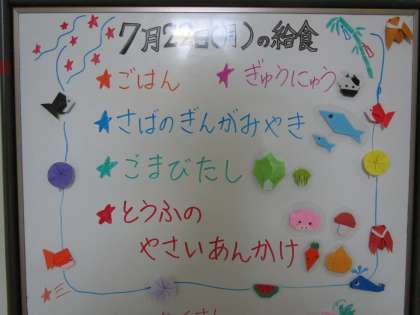 7月22日(月)の給食
★ごはん ★ぎゅうにゅう
★さばのぎんがみやき
★ごまびたし
★とうふの
やさいあんかけ